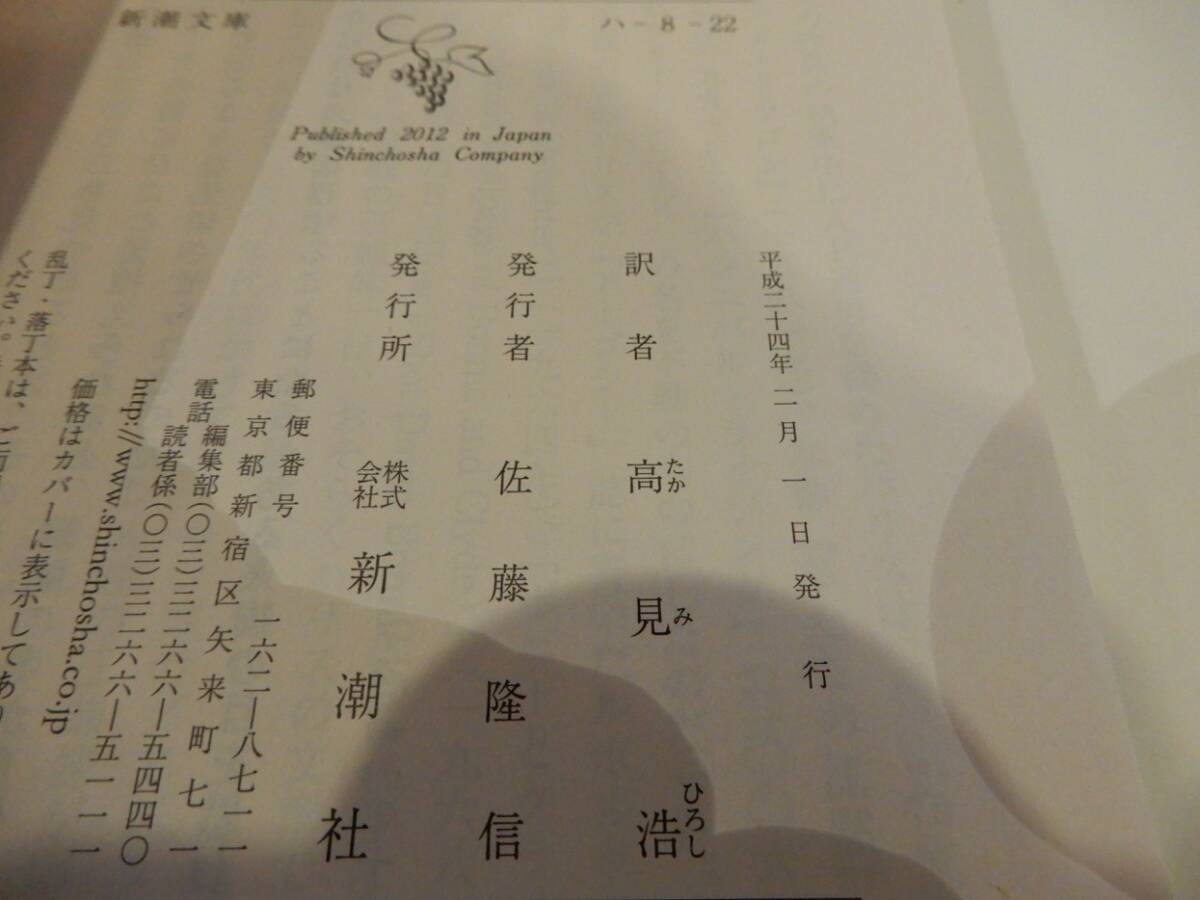 新潮文庫
ハ-8-22
Published 2012 in Japan
by Shinchosha Company
平成二十四年二月一日発行
訳者 高見浩
たか み ひろし
発行者 佐藤隆信
発行所 株式会社 新潮社
郵便番号 一六二―八七一一
東京都新宿区矢来町七一
電話 編集部(〇三)三二六六―五四四〇
読者係(〇三)三二六六―五一一一
http://www.shinchosha.co.jp
価格はカバーに表示してあり
乱丁・落丁本は、ご面
ください。